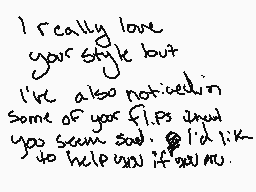 I really love
your style but
I've also noticed in
some of your flips that
you seem sad. I'd like
to help you if you are.